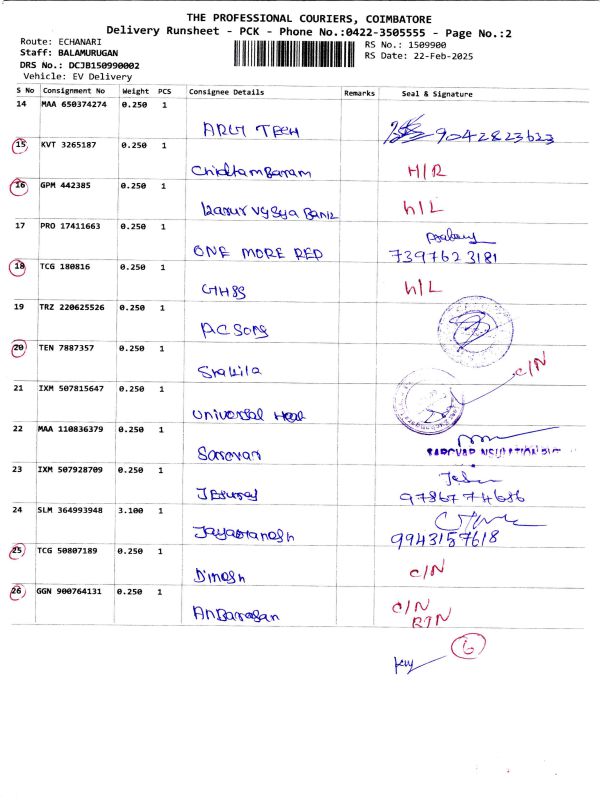 THE PROFESSIONAL COURIERS, COIMBATORE
Delivery Runsheet - PCK - Phone No.:0422-3505555 - Page No.:2
Route: ECHANARI
RS No.: 1509900
Staff: BALAMURUGAN
RS Date: 22-Feb-2025
DRS No.: DCJB150990002
Vehicle: EV Delivery
S No Consignment No Weight PCS Consignee Details Remarks Seal & Signature
14 MAA 650374274 0.250 1
TECH 9042823623
15 KVT 3265187 0.250 1
Chidtambaram H/R
16 GPM 442385 0.250 1
karur vysya Bank h/L
17 PRO 17411663 0.250 1
ONE MORE RED 7397623181
18 TCG 180816 0.250 1
GHSS h/L
19 TRZ 220625526 0.250 1
AC SONS
20 TEN 7887357 0.250 1
c/N
21 IXM 507815647 0.250 1
Universal
22 MAA 110836379 0.250 1
Sarovar
23 IXM 507928709 0.250 1
9786774686
24 SLM 364993948 3.100 1
9943157618
25 TCG 50807189 0.250 1
Dinesh c/N
26 GGN 900764131 0.250 1
Anbarasan c/N
RTN
6